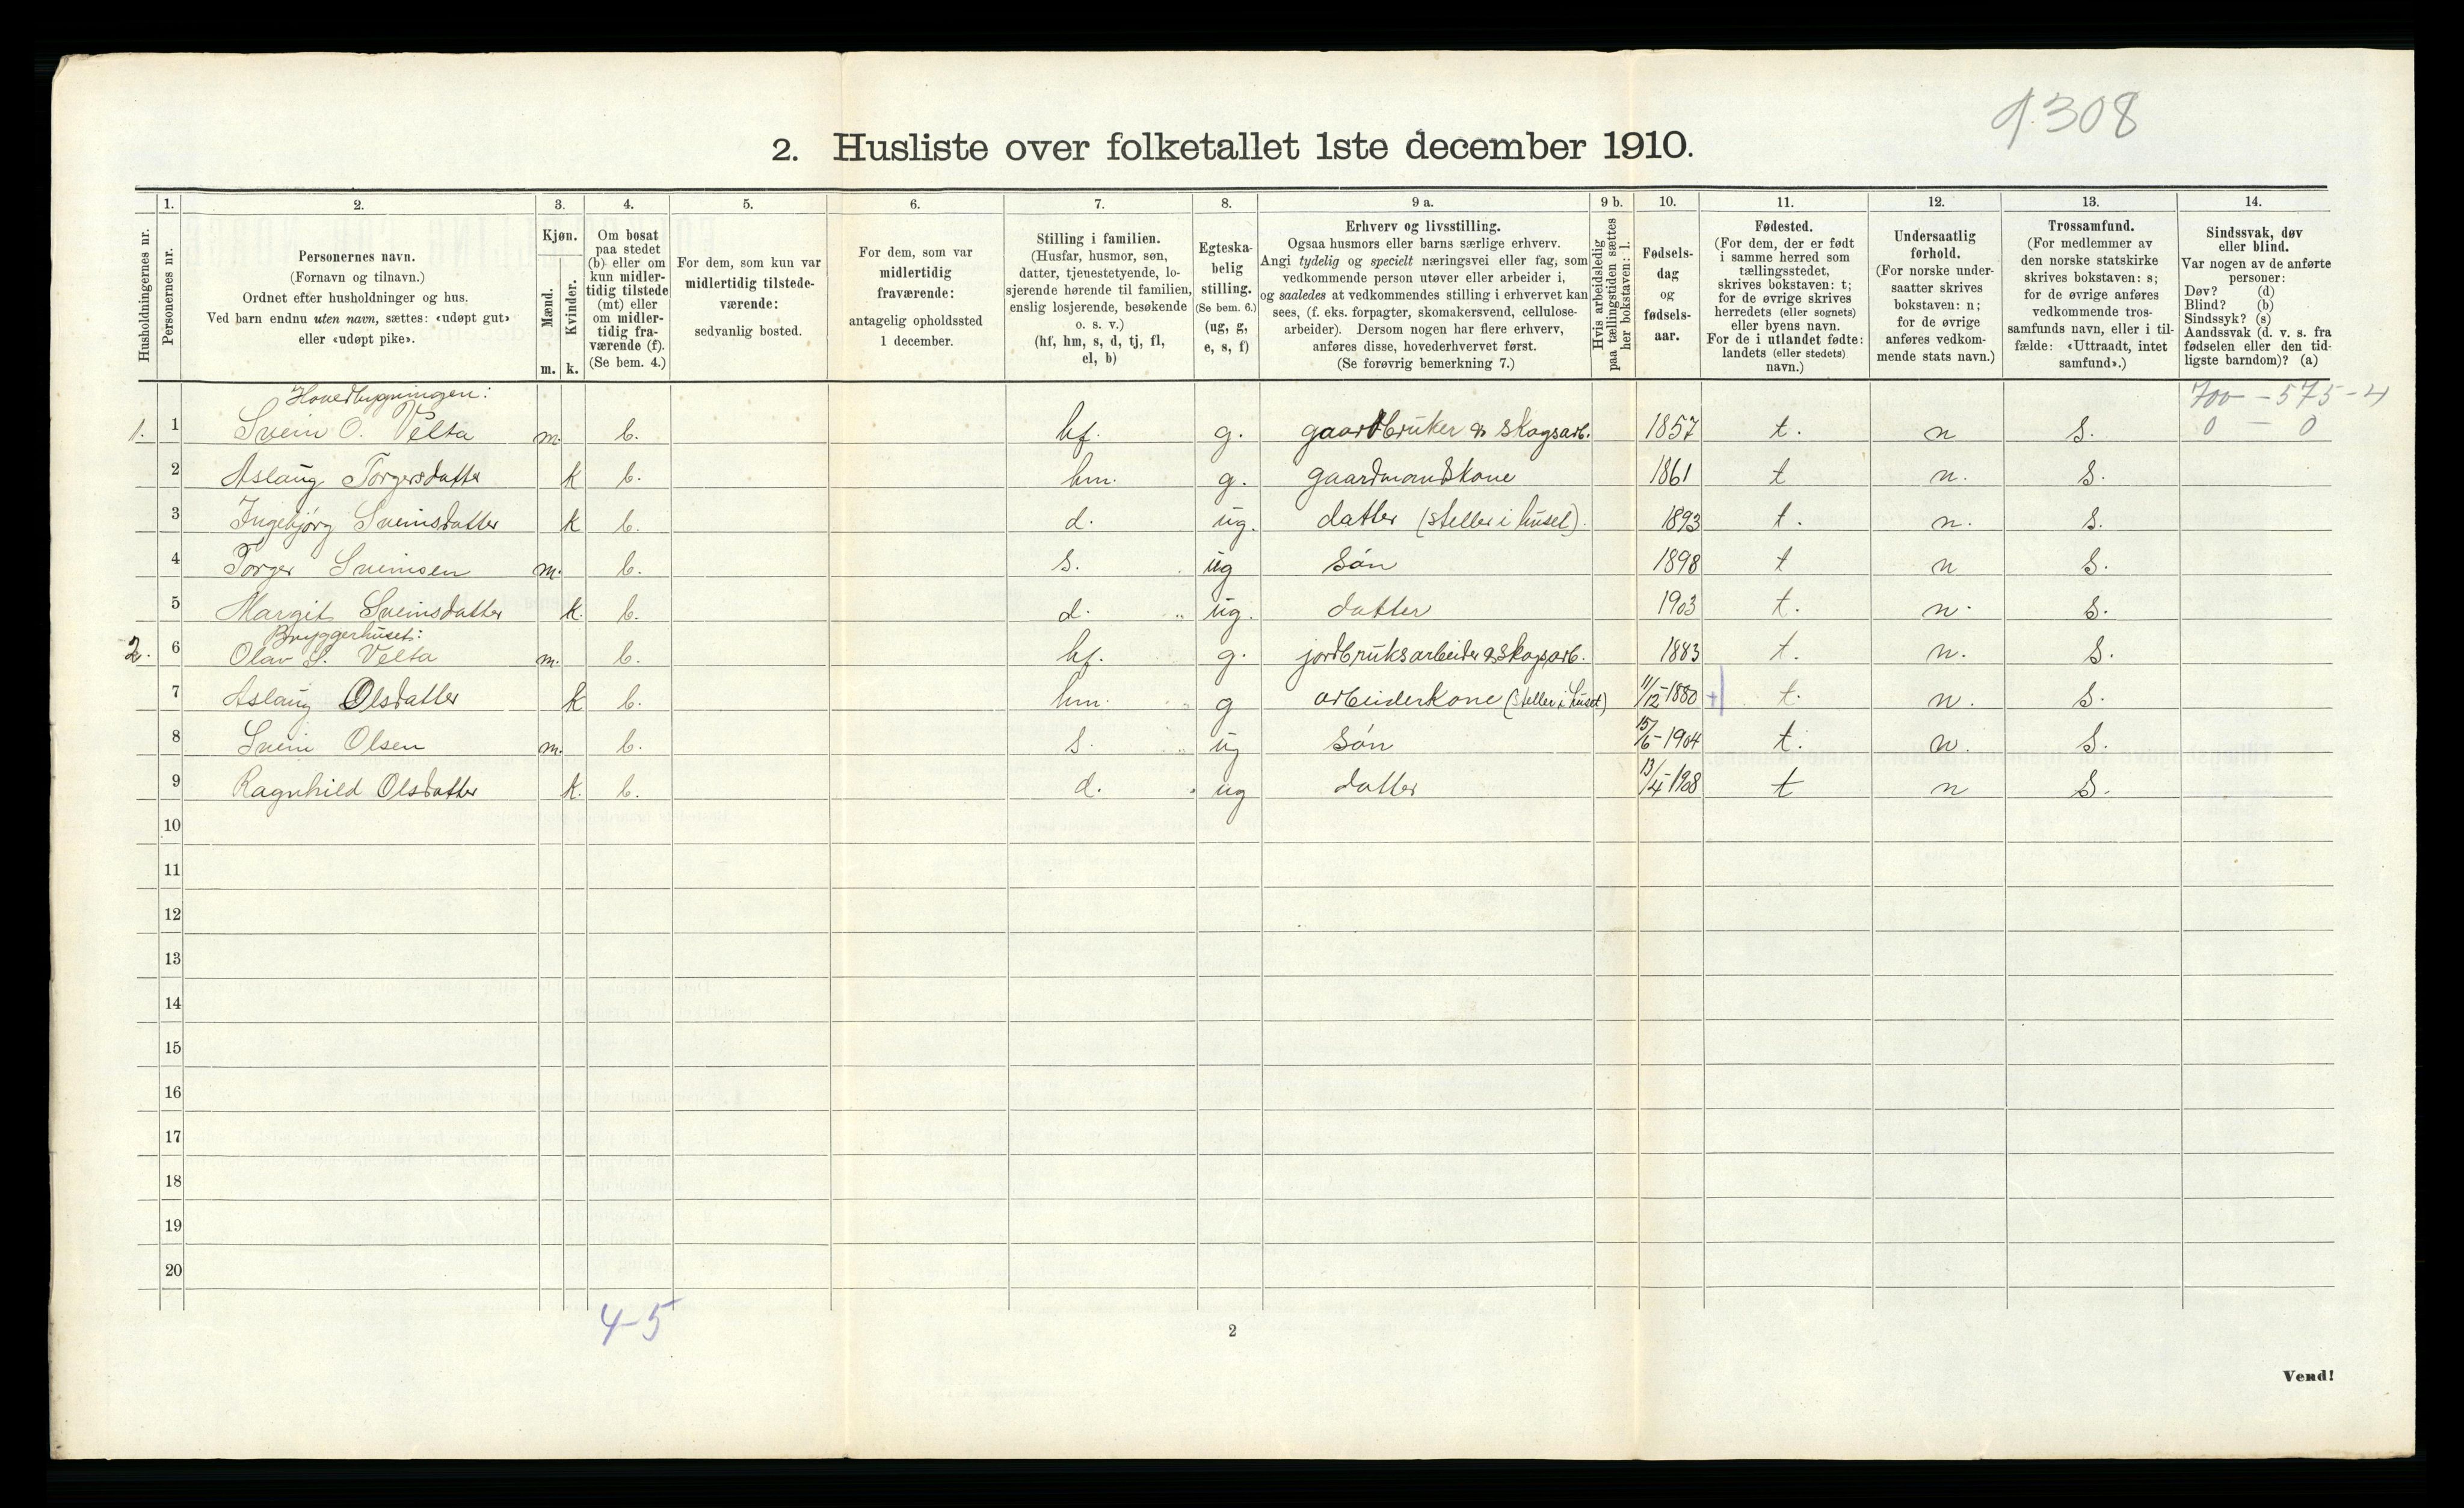 9.308
2. Husliste over folketallet 1ste december 1910.
Husholdningernes nr.
1.
Personernes nr.
2.
Personernes navn.
(Fornavn og tilnavn.)
Ordnet efter husholdninger og hus.
Ved barn endnu uten navn, sættes: «udøpt gut»
eller «udøpt pike».
3.
Kjøn.
Mænd.
Kvinder.
m. k.
4.
Om bosat
paa stedet
(b) eller om
kun midler-
tidig tilstede
(mt) eller
om midler-
tidig fra-
værende (f).
(Se bem. 4.)
5.
For dem, som kun var
midlertidig tilstede-
værende:
sedvanlig bosted.
6.
For dem, som var
midlertidig
fraværende:
antagelig opholdssted
1 december.
7.
Stilling i familien.
(Husfar, husmor, søn,
datter, tjenestetyende, lo-
sjerende hørende til familien,
enslig losjerende, besøkende
o. s. v.)
(hf, hm, s, d, tj, fl,
el, b)
8.
Egteska-
belig
stilling.
(Se bem. 6.)
(ug, g,
e, s, f)
9 a.
Erhverv og livsstilling.
Ogsaa husmors eller barns særlige erhverv.
Angi tydelig og specielt næringsvei eller fag, som
vedkommende person utøver eller arbeider i,
og saaledes at vedkommendes stilling i erhvervet kan
sees, (f. eks. forpagter, skomakersvend, cellulose-
arbeider). Dersom nogen har flere erhverv,
anføres disse, hovederhvervet først.
(Se forøvrig bemerkning 7.)
9 b.
Hvis arbeidsledig
paa tællingstiden sættes
her bokstaven: l.
10.
Fødsels-
dag
og
fødsels-
aar.
11.
Fødested.
(For dem, der er født
i samme herred som
tællingsstedet,
skrives bokstaven: t;
for de øvrige skrives
herredets (eller sognets)
eller byens navn.
For de i utlandet fødte:
landets (eller stedets)
navn.)
12.
Undersaatlig
forhold.
(For norske under-
saatter skrives
bokstaven: n;
for de øvrige
anføres vedkom-
mende stats navn.)
13.
Trossamfund.
(For medlemmer av
den norske statskirke
skrives bokstaven: s;
for de øvrige anføres
vedkommende tros-
samfunds navn, eller i til-
fælde: «Uttraadt, intet
samfund».)
14.
Sindssvak, døv
eller blind.
Var nogen av de anførte
personer:
Døv? (d)
Blind? (b)
Sindssyk? (s)
Aandssvak (d. v. s. fra
fødselen eller den tid-
ligste barndom)? (a)
Hovedbygningen: 700 - 575 - 4
1. 1 Svein O. Velta m. b. hf. g. gaardbruker & skogsarb. 1857 t. n s. 0 - 0
2 Aslaug Torgersdatter k b. hm. g. gaardmandskone 1861 t n. s.
3 Ingebjørg Sveinsdatter k b. d. ug. datter (steller i huset). 1893 t. n. s.
4 Torger Sveinsen m. b. s. ug søn 1898 t n s.
5 Margit Sveinsdatter k. b. d. ug. datter 1903 t. n. s.
Bryggerhuset:
2. 6 Olav S. Velta m. b. hf. g. jordbruksarbeider & skogsarb. 1883 t. n. s.
7 Aslaug Olsdatter k b. hm. g arbeiderkone (steller i huset) 11/12-1880 t. n. s.
8 Svein Olsen m. b. s. ug søn 15/6-1904 t. n. s.
9 Ragnhild Olsdatter k. b. d. ug datter 13/4-1908 t n s.
10
11
12
13
14
15
16
17
18
19
20
4-5
2
Vend!